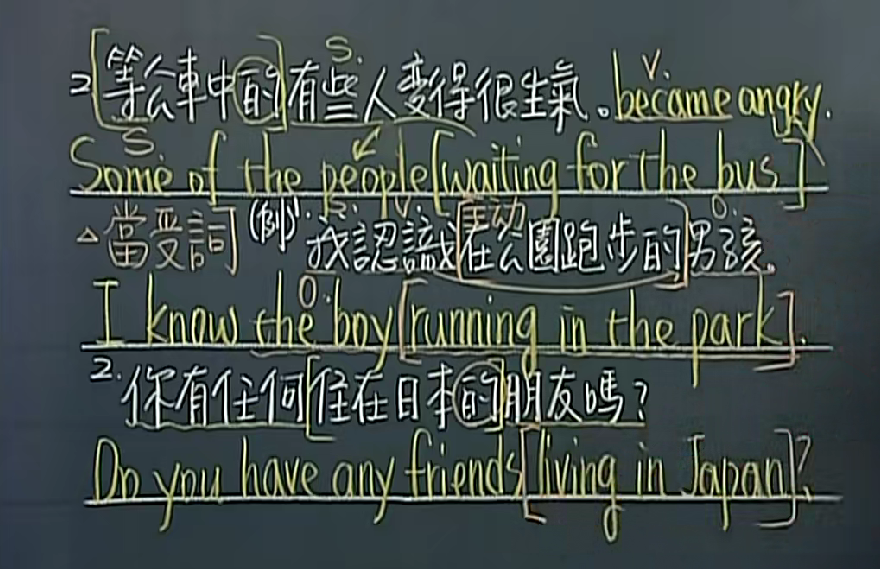 2 [等公車中的]有些人变得很生氣。became angry.
S. V.
S
Some of the people[waiting for the bus]
△當受詞 (例)1. 我認識[在公園跑步的]男孩。
S. V. 主动 O.
O.
I know the boy[running in the park].
2. 你有任何[住在日本的]朋友嗎?
Do you have any friends[living in Japan]?